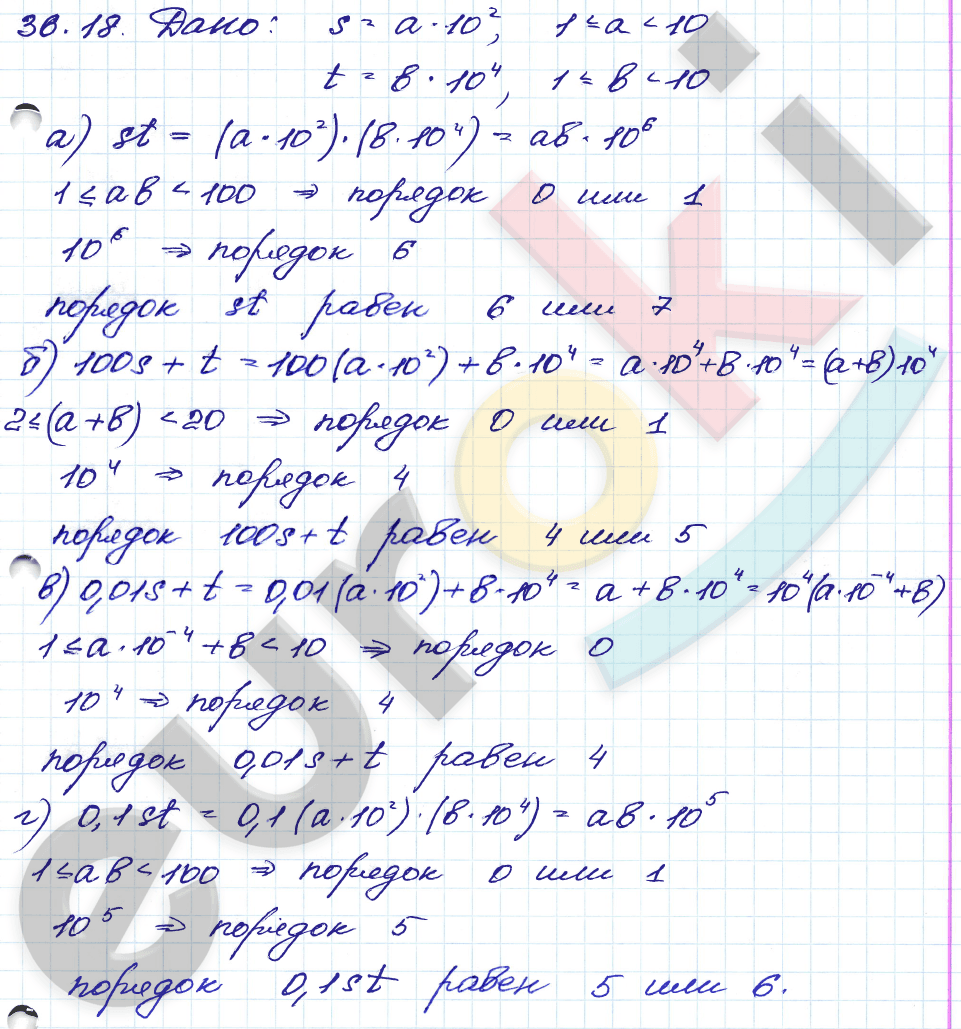 36.18. Дано: s = a · 10², 1 ≤ a < 10
t = в · 10⁴, 1 ≤ в < 10
а) st = (a · 10²) · (в · 10⁴) = aв · 10⁶
1 ≤ aв < 100 ⇒ порядок 0 или 1
10⁶ ⇒ порядок 6
порядок st равен 6 или 7
б) 100s + t = 100(a · 10²) + в · 10⁴ = a · 10⁴ + в · 10⁴ = (a + в) 10⁴
2 ≤ (a + в) < 20 ⇒ порядок 0 или 1
10⁴ ⇒ порядок 4
порядок 100s + t равен 4 или 5
в) 0,01s + t = 0,01(a · 10²) + в · 10⁴ = a + в · 10⁴ = 10⁴(a · 10⁻⁴ + в)
1 ≤ a · 10⁻⁴ + в < 10 ⇒ порядок 0
10⁴ ⇒ порядок 4
порядок 0,01s + t равен 4
г) 0,1st = 0,1(a · 10²) · (в · 10⁴) = aв · 10⁵
1 ≤ aв < 100 ⇒ порядок 0 или 1
10⁵ ⇒ порядок 5
порядок 0,1st равен 5 или 6.
euroki